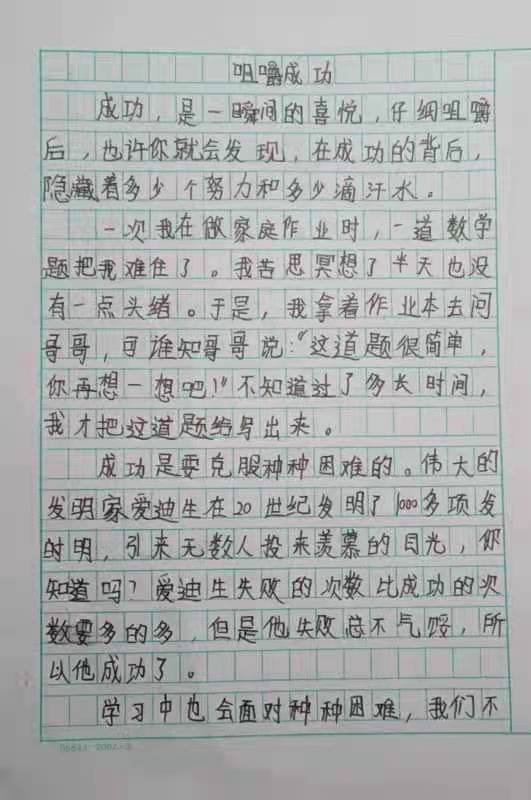 咀嚼成功
成功，是一瞬间的喜悦，仔细咀嚼
后，也许你就会发现，在成功的背后，
隐藏着多少个努力和多少滴汗水。
一次我在做家庭作业时，一道数学
题把我难住了。我苦思冥想了半天也没
有一点头绪。于是，我拿着作业本去问
哥哥，可谁知哥哥说：“这道题很简单，
你再想一想吧！”不知道过了多长时间，
我才把这道题给写出来。
成功是要克服种种困难的。伟大的
发明家爱迪生在20世纪发明了1000多项发
时明，引来无数人投来羡慕的目光，你
知道吗？爱迪生失败的次数比成功的次
数要多的多，但是他失败总不气馁，所
以他成功了。
学习中也会面对种种困难，我们不